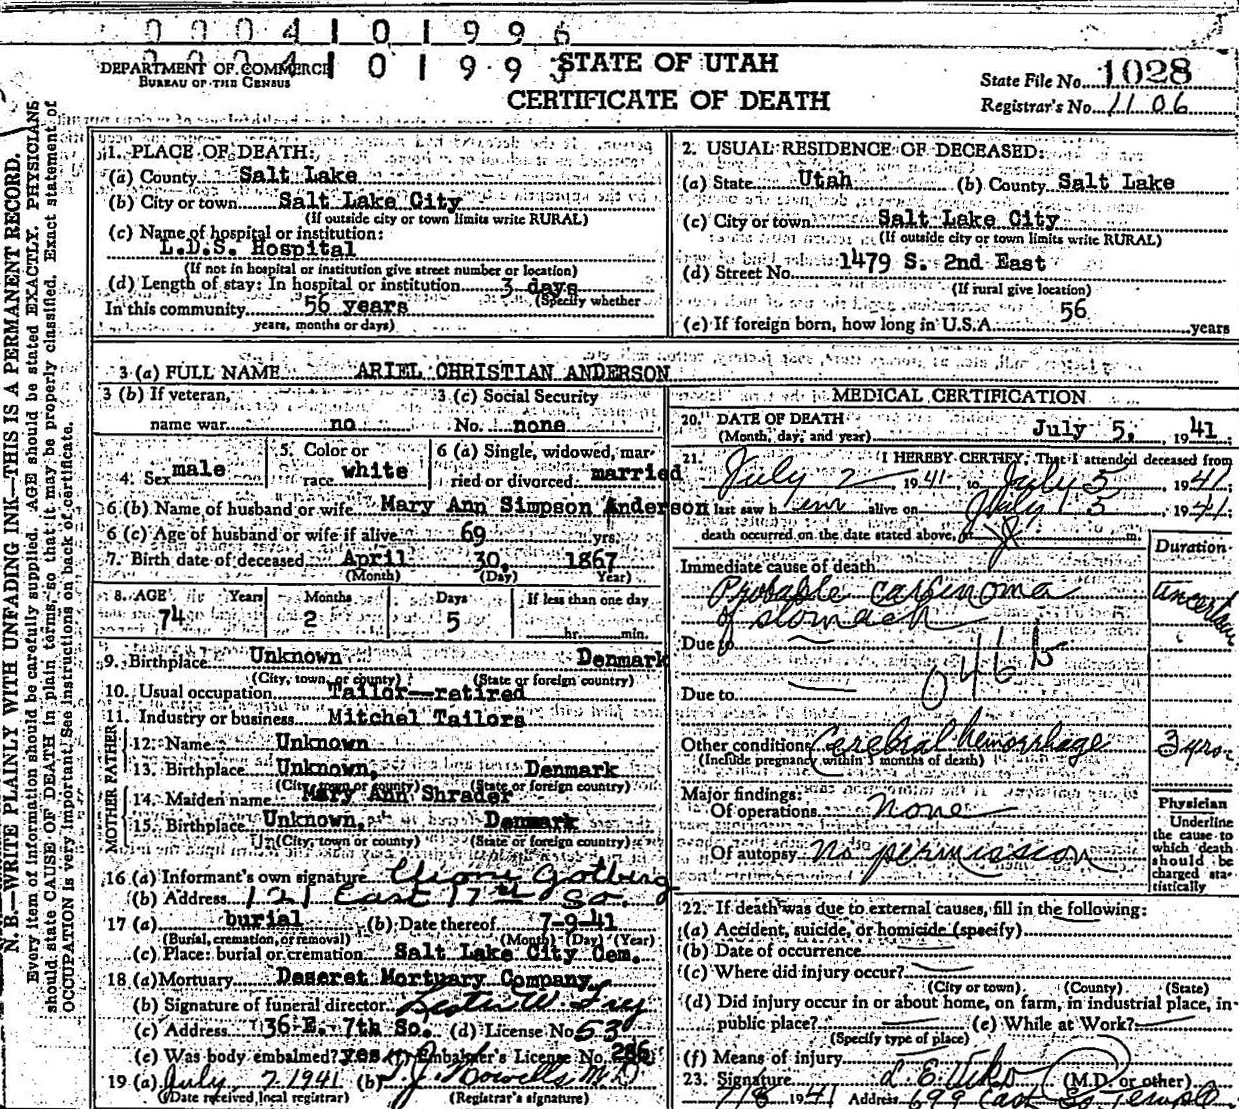 0 0 0 4 1 0 1 9 9 6
DEPARTMENT OF COMMERCE
BUREAU OF THE CENSUS
STATE OF UTAH
CERTIFICATE OF DEATH
State File No. 1028
Registrar's No. 1106
N. B.—WRITE PLAINLY WITH UNFADING INK—THIS IS A PERMANENT RECORD.
Every item of information should be carefully supplied. AGE should be stated EXACTLY. PHYSICIANS
should state CAUSE OF DEATH in plain terms, so that it may be properly classified. Exact statement of
OCCUPATION is very important. See instructions on back of certificate.
1. PLACE OF DEATH:
(a) County Salt Lake
(b) City or town Salt Lake City
(If outside city or town limits write RURAL)
(c) Name of hospital or institution:
L.D.S. Hospital
(If not in hospital or institution give street number or location)
(d) Length of stay: In hospital or institution 3 days
(Specify whether
In this community 56 years
years, months or days)
2. USUAL RESIDENCE OF DECEASED:
(a) State Utah (b) County Salt Lake
(c) City or town Salt Lake City
(If outside city or town limits write RURAL)
(d) Street No. 1479 S. 2nd East
(If rural give location)
(e) If foreign born, how long in U.S.A. 56 years
3 (a) FULL NAME ARIEL CHRISTIAN ANDERSON
3 (b) If veteran,
name war no
3 (c) Social Security
No. none
4. Sex male
5. Color or
race white
6 (a) Single, widowed, mar-
ried or divorced married
6 (b) Name of husband or wife Mary Ann Simpson Anderson
6 (c) Age of husband or wife if alive 69 yrs.
7. Birth date of deceased April 30, 1867
(Month) (Day) Year)
8. AGE Years Months Days If less than one day
74 2 5 hr. min.
9. Birthplace Unknown Denmark
(City, town, or county) (State or foreign country)
10. Usual occupation Tailor—retired
11. Industry or business Mitchel Tailors
FATHER
12. Name Unknown
13. Birthplace Unknown, Denmark
(City, town or county) (State or foreign country)
MOTHER
14. Maiden name Mary Ann Shrader
15. Birthplace Unknown, Denmark
(City, town or county) (State or foreign country)
16 (a) Informant's own signature
(b) Address 121 East 17th So.
17 (a) burial (b) Date thereof 7-9-41
(Burial, cremation, or removal) (Month) (Day) (Year)
(c) Place: burial or cremation Salt Lake City Cem.
18 (a) Mortuary Deseret Mortuary Company
(b) Signature of funeral director
(c) Address 36 E. 7th So. (d) License No. 53
(e) Was body embalmed? yes (f) Embalmer's License No. 286
19 (a) July 7 1941 (b) T. J. Howells M D
(Date received local registrar) (Registrar's signature)
MEDICAL CERTIFICATION
20. DATE OF DEATH
(Month, day, and year) July 5, 1941
21. I HEREBY CERTIFY, That I attended deceased from
July 2 1941 to July 5, 1941
I last saw him alive on July 5, 1941
death occurred on the date stated above, at m.
Duration
Immediate cause of death
Probable carcinoma uncertain
of stomach
Due to
046b
Due to
Other conditions Cerebral hemorrhage 3 yrs.
(Include pregnancy within 3 months of death)
Major findings:
Of operations none
Of autopsy No permission
Physician
Underline
the cause to
which death
should be
charged sta-
tistically
22. If death was due to external causes, fill in the following:
(a) Accident, suicide, or homicide (specify)
(b) Date of occurrence
(c) Where did injury occur?
(City or town) (County) (State)
(d) Did injury occur in or about home, on farm, in industrial place, in
public place? (e) While at Work?
(Specify type of place)
(f) Means of injury
23. Signature (M.D. or other)
7/8 1941 Address 699 East So Temple